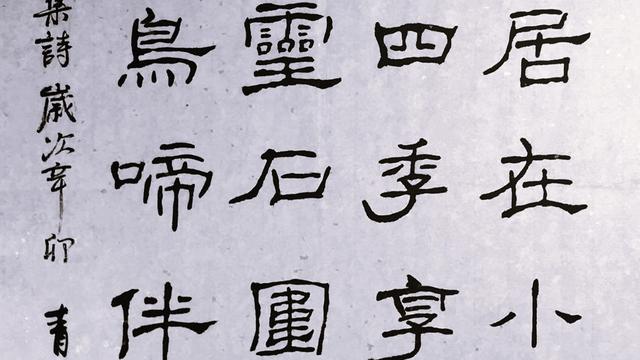 居在小
四季享
靈石圍
鳥啼伴
詩歲次辛卯青